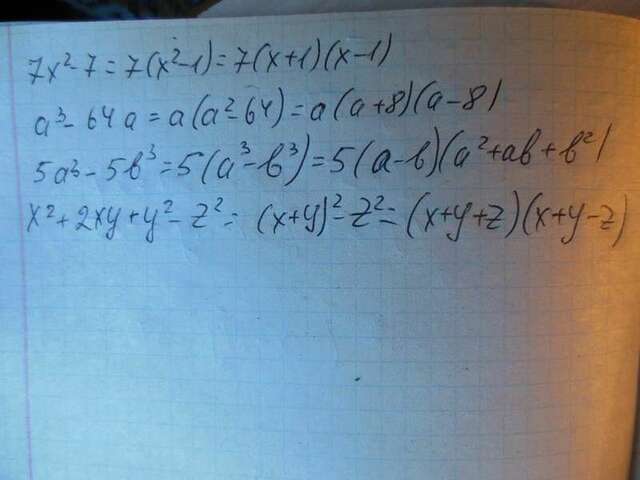 7x²-7=7(x²-1)=7(x+1)(x-1)
a³-64a=a(a²-64)=a(a+8)(a-8)
5a³-5b³=5(a³-b³)=5(a-b)(a²+ab+b²)
x²+2xy+y²-z²=(x+y)²-z²=(x+y+z)(x+y-z)